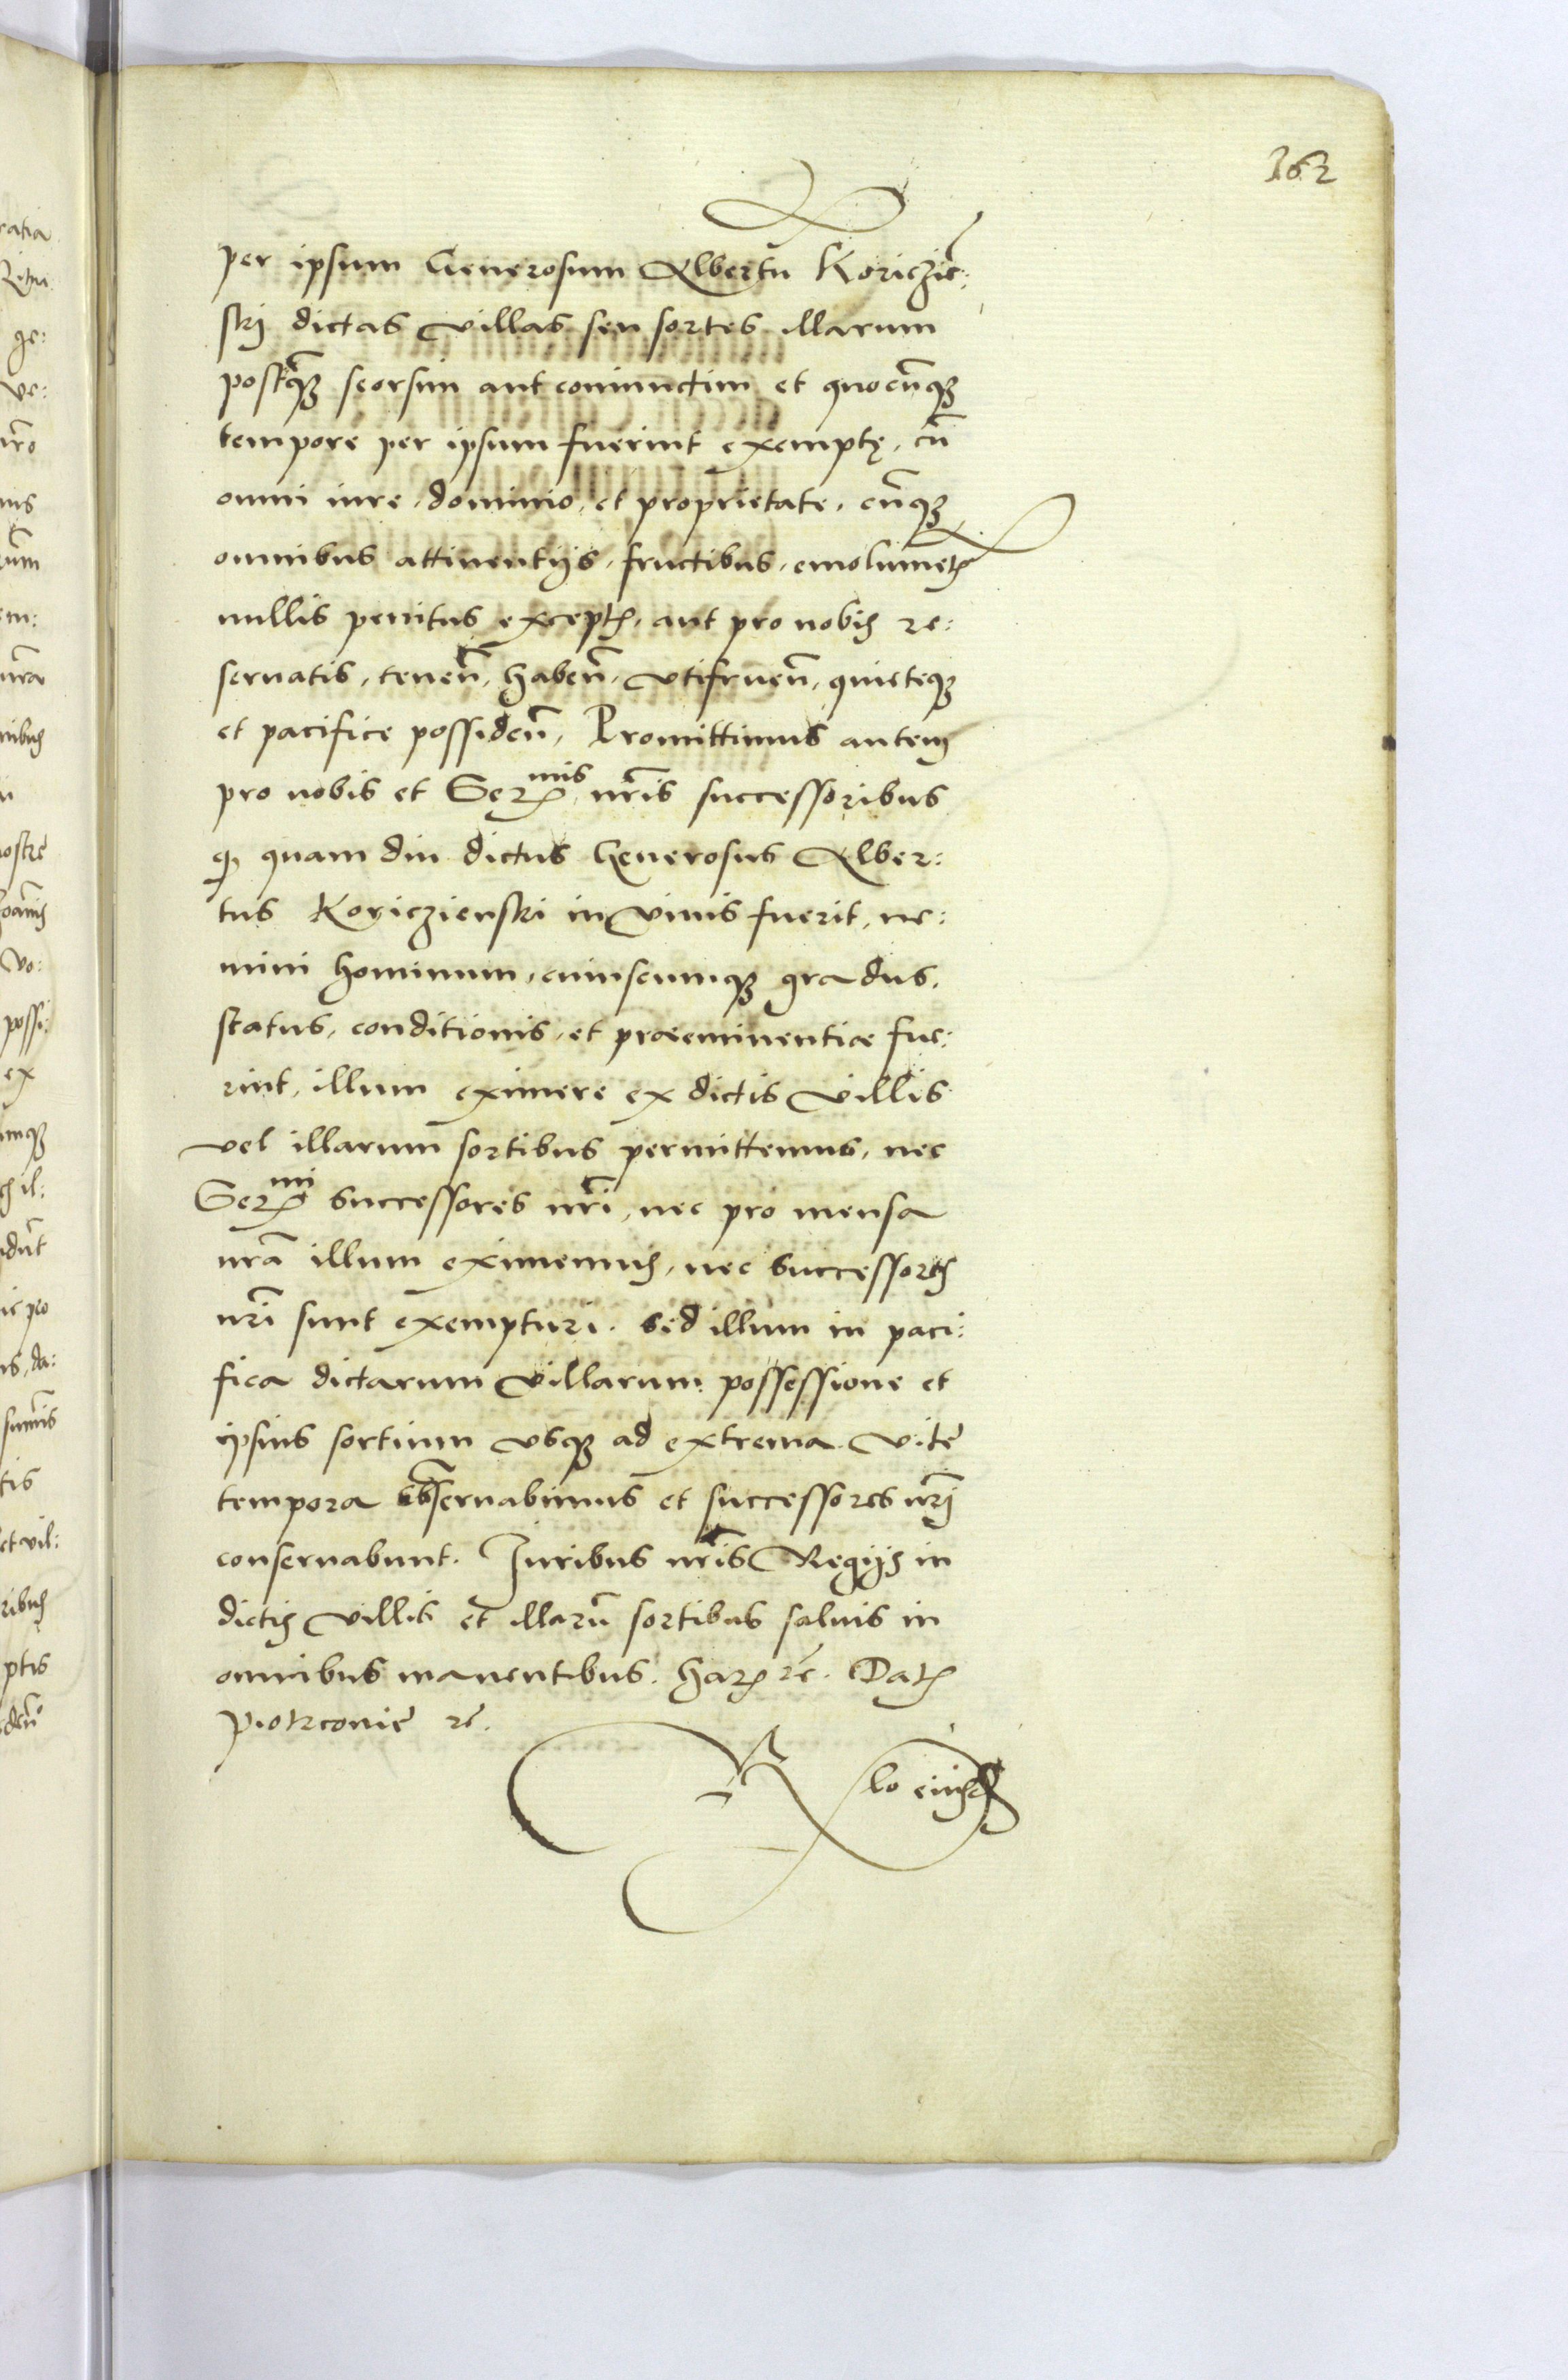 162
per ipsum Generosum Albertũ Koriczien̄:
ski dictas villas seu sortes illarum
postq̃ꝫ seorsim aut coniunctim et quocũqꝫ
tempore per ipsum fuerint exemptę, cũ
omni iure, dominio, et proprietate, cũqꝫ
omnibus attinentijs, fructibus, emolumẽtꝭ
nullis penitus exceptꝭ, aut pro nobis re:
seruatis, tenen̄, haben̄, vtifruen̄, quieteqꝫ
et pacifice possiden̄, Promittimus autem
pro nobis et Serꝫmis nr̃is successoribus
ꝙ quam diu dictus Generosus Alber:
tus Koriczienski in viuis fuerit, ne:
mini hominum, cuiuscumqꝫ gradus,
status, conditionis, et præeminentiæ fue:
rint, illum eximere ex dictis villis
vel illarum sortibus permittemus, nec
Serꝫmi successores nr̃i, nec pro mensa
nr̃a illum eximemus, nec successores
nr̃i sunt exempturi. sed illum in paci:
fica dictarum villarum possessione et
ipsius sortium vsqꝫ ad extrema vitę
tempora obseruabimus et successores nr̃i
conseruabunt. Iuribus nr̃is Regijs in
dictis villis et illarũ sortibus saluis in
omnibus manentibus. Harꝫ rc̃. Datꝭ
Piotrconię rc̃.